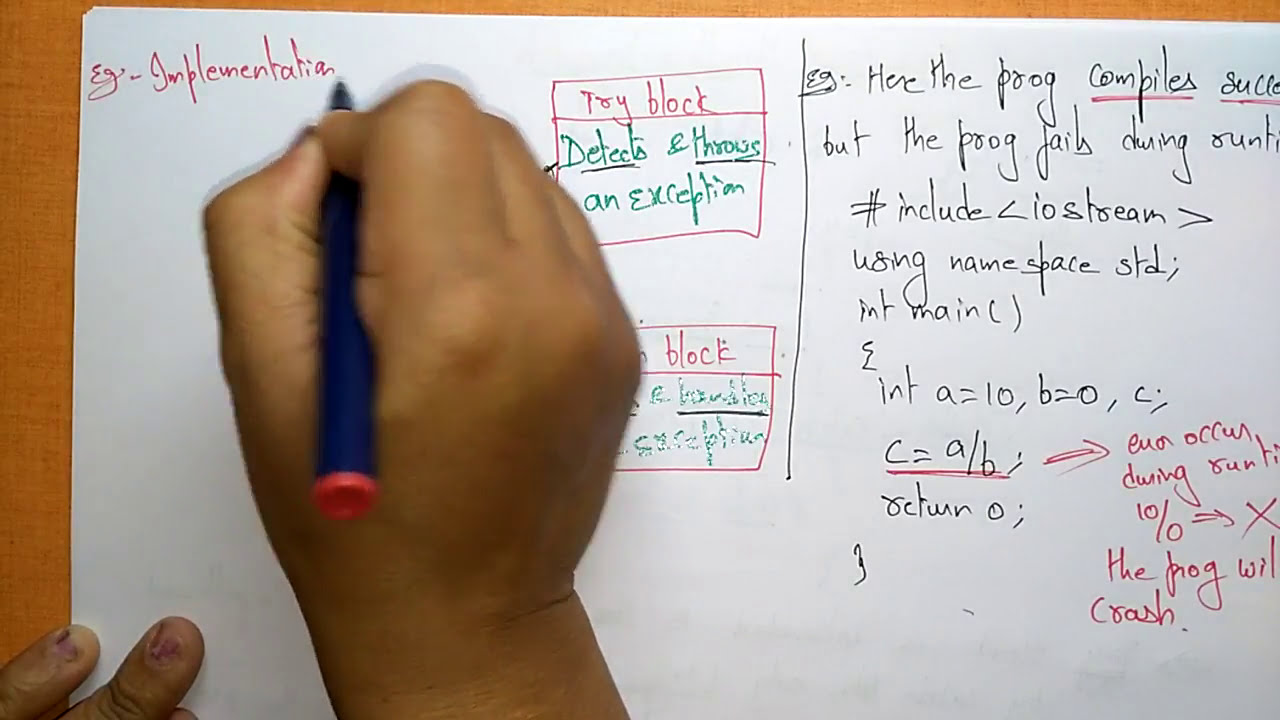 Eg:- Implementation
Try block
Detects & throws
an exception
block
exception
Eg:- Here the prog compiles succe
but the prog fails during runti
# include <iostream>
using namespace std;
int main()
{
int a=10, b=0, c;
c = a/b;
error occur
during runti
10/0 => X
return 0;
the prog wil
crash.
}